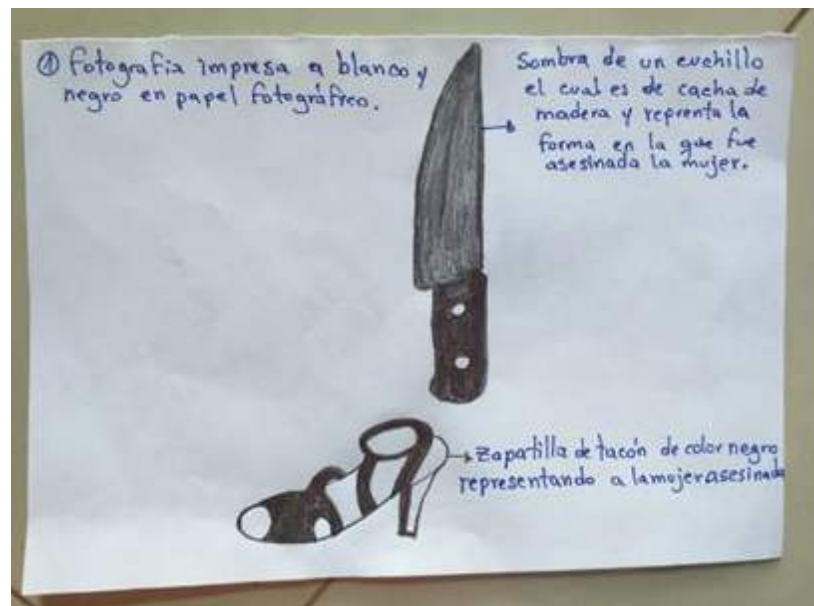 ① Fotografía impresa a blanco y
negro en papel fotográfico.
Sombra de un cuchillo
el cual es de cacha de
madera y reprenta la
forma en la que fue
asesinada la mujer.
Zapatilla de tacón de color negro
representando a la mujer asesinada